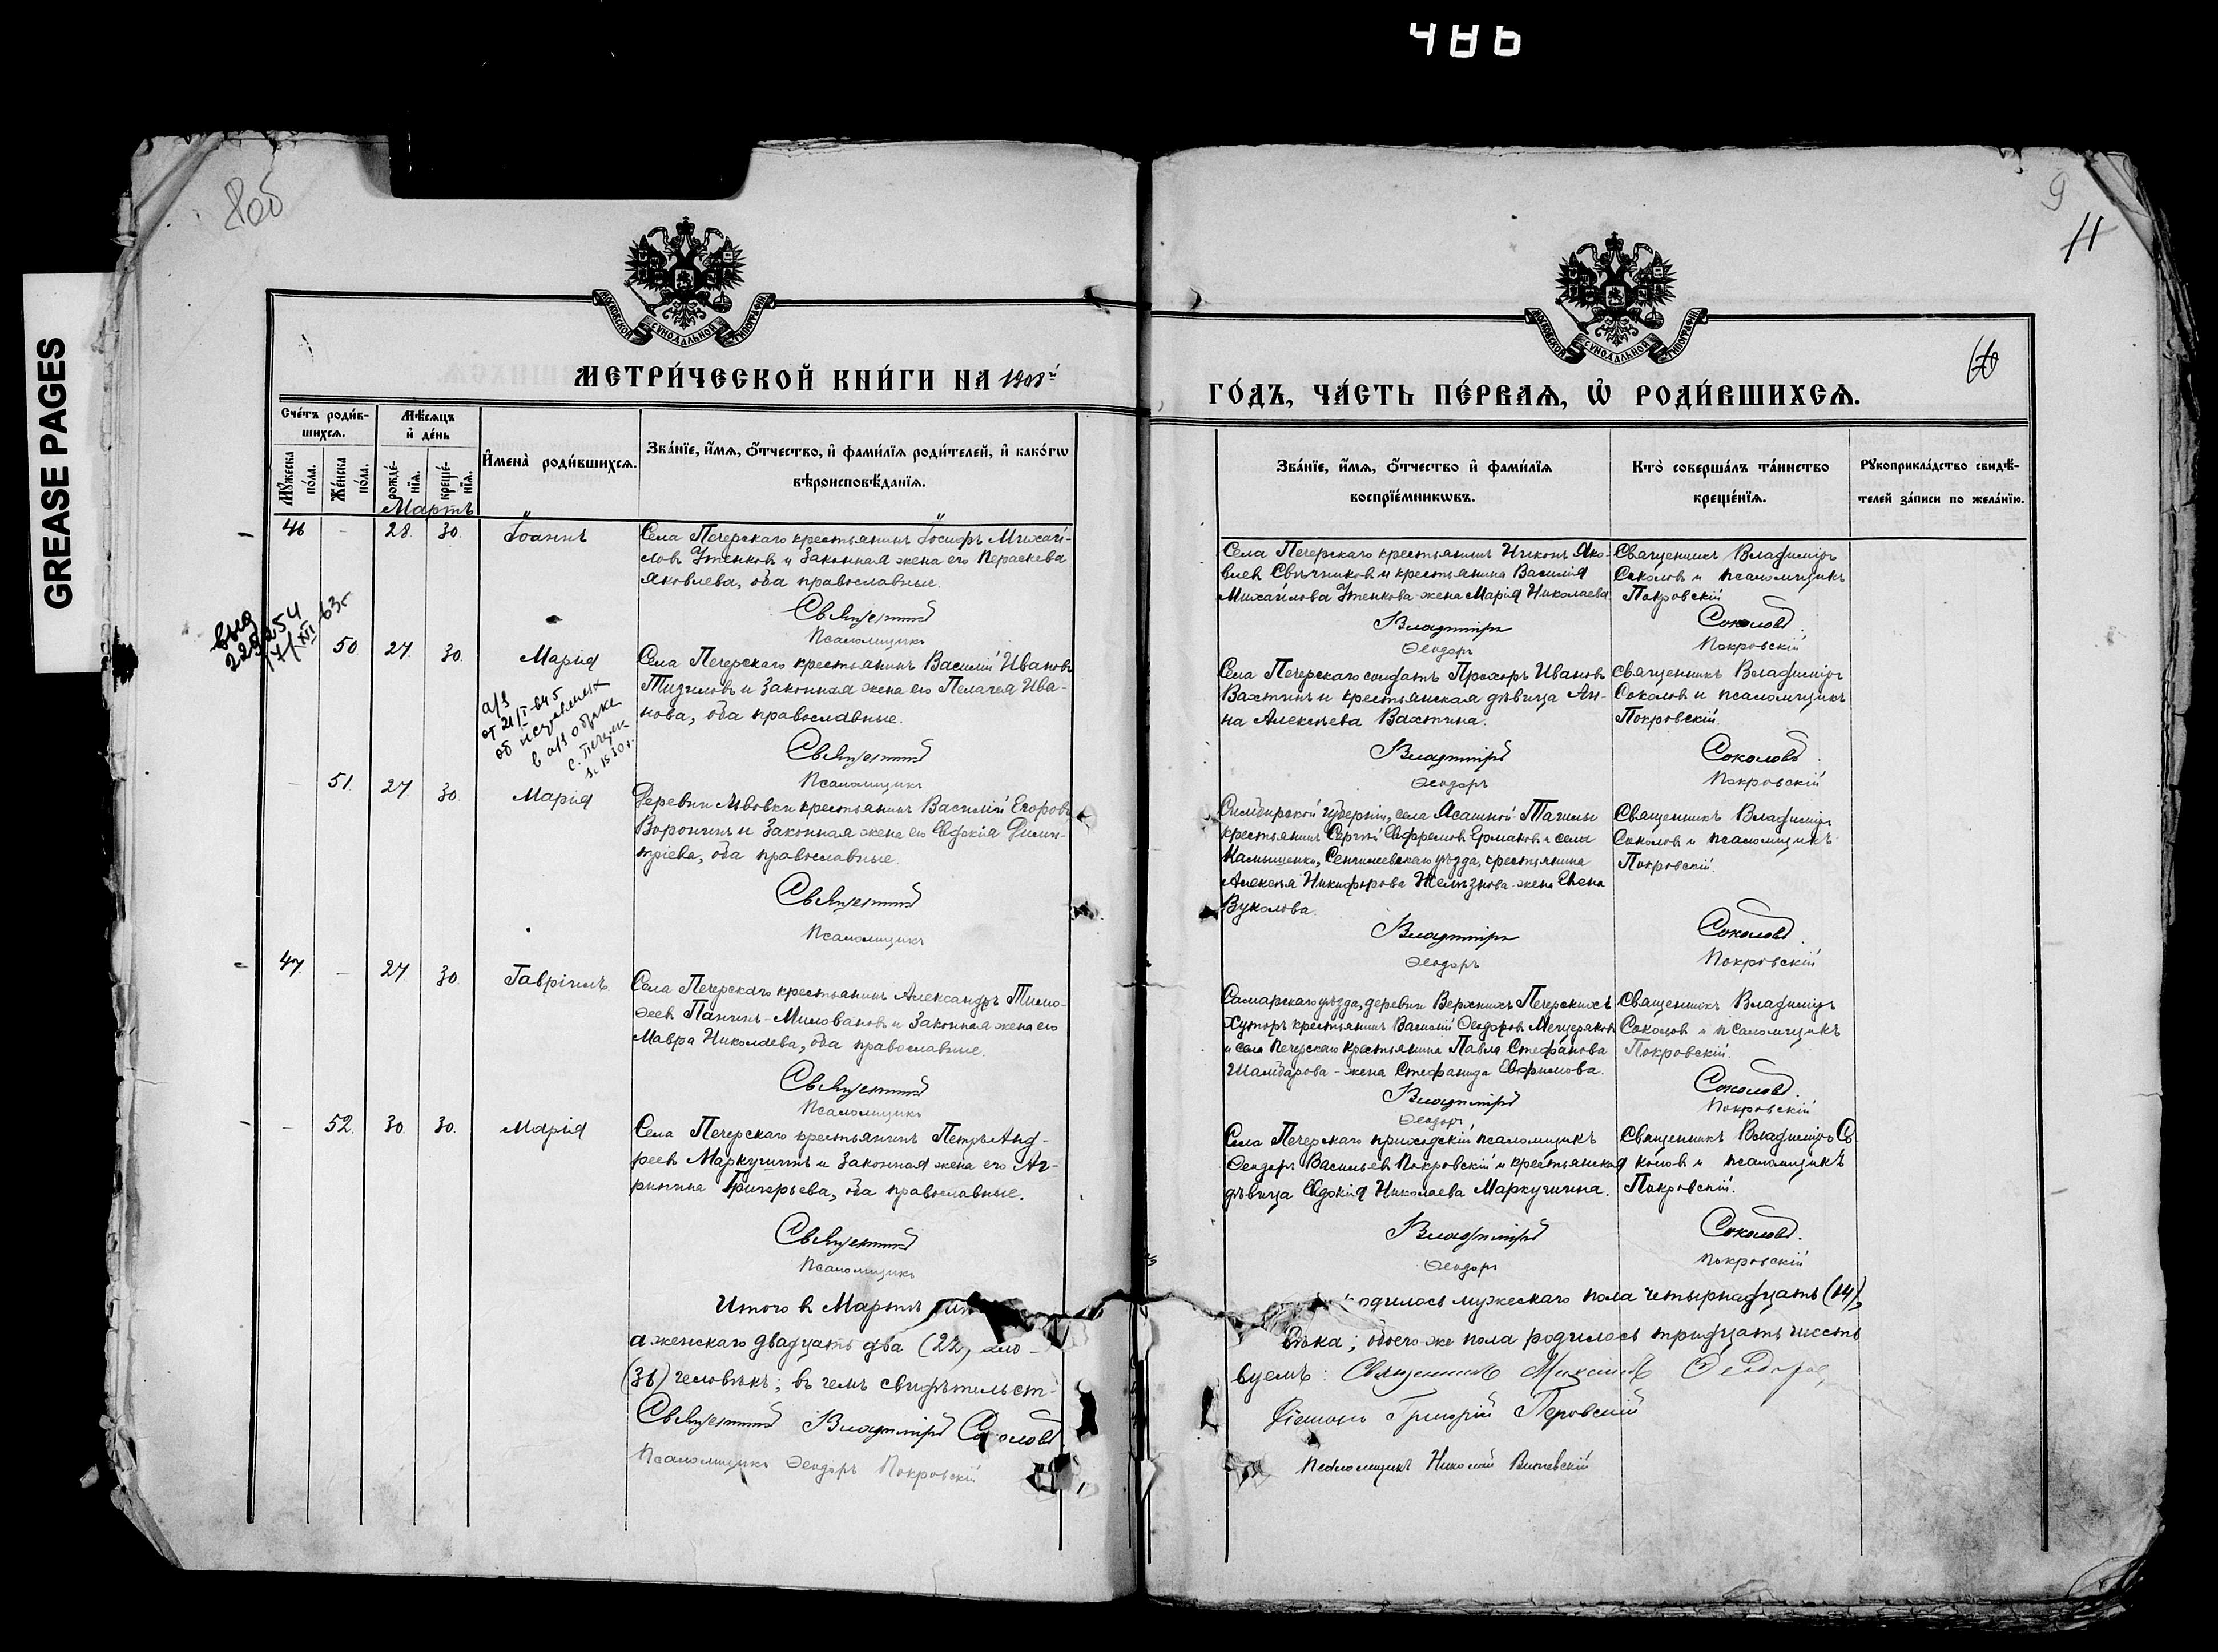 486
GREASE PAGES
8об
9
11
60
МОСКОВСКОЙ СѴНОДАЛЬНОЙ ТИПОГРАФІИ
МОСКОВСКОЙ СѴНОДАЛЬНОЙ ТИПОГРАФІИ
МЕТРИ́ЧЕСКОЙ КНИ́ГИ НА
ГО́ДЪ, ЧА́СТЬ ПЕ́РВАѦ, Ѡ҆ РОДИ́ВШИХСѦ.
Сче́тъ роди́в-
шихсѧ.
Мѣ́сѧцъ
и҆ де́нь
Мꙋ́жеска
по́ла.
Же́нска
по́ла.
рожде́-
нїѧ.
креще́-
нїѧ.
И҆мена̀ роди́вшихсѧ.
Зва́нїе, и҆́мѧ, ѻ҆́тчество, и҆ фами́лїѧ роди́телей, и҆ како́гѡ
вѣроисповѣ́данїѧ.
Зва́нїе, и҆́мѧ, ѻ҆́тчество и҆ фами́лїѧ
воспрїе́мникѡвъ.
Кто̀ соверша́лъ та́инство
креще́нїѧ.
Рꙋкоприкла́дство свидѣ́-
телей за́писи по жела́нїю.
Мартъ
46 - 28. 30. Іоаннъ
Села Печерскаго крестьянинъ Іосифъ Михай-
ловъ Утенковъ и законная жена его Параскева
Яковлева, оба православные.
Священникъ
Псаломщикъ
Села Печерскаго крестьянинъ Никонъ Яко-
влев Свѣчников и крестьянина Василія
Михайлова Утенкова жена Марія Николаева.
Владиміръ
Ѳеодоръ
Священникъ Владиміръ
Соколов и псаломщикъ
Покровскій
Соколовъ.
Покровскій
выд
50 27. 30. Марія
Села Печерскаго крестьянинъ Василій Ивановъ
Тизиловъ и законная жена его Пелагея Ива-
нова, оба православные.
Священникъ
Псаломщикъ
Села Печерскаго солдатъ Прохоръ Ивановъ
Вахтинъ и крестьянская дѣвица Ан-
на Алексѣева Вахтина.
Владиміръ
Ѳеодоръ
Священникъ Владиміръ
Соколов и псаломщикъ
Покровскій.
Соколовъ.
Покровскій
а/з
об исправлен
в а/з о браке
- 51. 27. 30. Марія
Деревни Львовки крестьянинъ Василій Егоровъ
Воронинъ и законная жена его Евдокія Дими-
тріева, оба православные.
Священникъ
Псаломщикъ
Симбирской губерніи, села Ясашной Ташлы
крестьянинъ Сергѣй Ефремовъ Ермаковъ и села
Камышенки, Сенгилеевскаго уѣзда, крестьянина
Алексѣя Никифорова Желѣзнова жена Елена
Вуколова.
Владиміръ
Ѳеодоръ
Священникъ Владиміръ
Соколов и псаломщикъ
Покровскій.
Соколовъ.
Покровскій
47 - 27 30. Гавріилъ
Села Печерскаго крестьянинъ Александръ Тимо-
ѳеев Панинъ-Миловановъ и законная жена его
Мавра Николаева, оба православные.
Священникъ
Псаломщикъ
Самарскаго уѣзда, деревни Верхнихъ Печерскихъ
Хуторъ крестьянинъ Василій Ѳеодоров Мещеряков
и села Печерскаго крестьянина Павла Стефанова
Шамбарова - жена Стефанида Евфимова.
Владиміръ
Ѳеодоръ
Священникъ Владиміръ
Соколов и псаломщикъ
Покровскій.
Соколовъ.
Покровскій
- 52. 30. 30. Марія
Села Печерскаго крестьянинъ Петръ Анд-
реевъ Маркушинъ и законная жена его Аг-
рипина Григорьева, оба православные.
Священникъ
Псаломщикъ
Села Печерскаго приходскій псаломщикъ
Ѳеодоръ Васильев Покровскій и крестьянская
дѣвица Евдокія Николаева Маркушина.
Владиміръ
Ѳеодоръ
Священникъ Владиміръ Со-
колов и псаломщикъ
Покровскій.
Соколовъ.
Покровскій
Итого въ Мартѣ
одилось мужескаго пола четырнадцать (14),
а женскаго двадцать два (22)
вѣка; обоего же пола родилось тридцать шесть
(36) человѣкъ; въ чемъ свидѣтельст-
вуемъ: Священникъ
Священникъ Владиміръ Соколовъ
Діаконъ Григорій Перовскій
Псаломщикъ Ѳеодоръ Покровскій
Псаломщикъ Николай